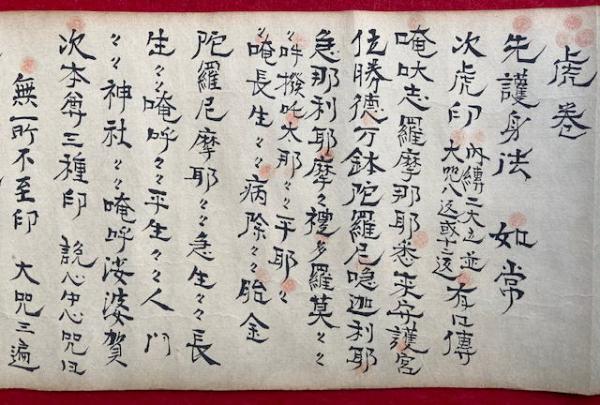 虎卷
先護身法 如常
次虎印 内縛二大立並 大咒八返或十二返 有口傳
唵吠志羅摩那耶悉来守護宮
位勝德万鉢陀羅尼唵迦利耶
急那利耶摩々禮多羅莫々々
々吽撥吒太耶々々平耶々
々唵長生々々病除々々胎金
陀羅尼摩耶々々急生々々長
生々々唵呼々々平生々々人
々々神社々々唵呼婆賀
次本尊三種印 心中心咒曰
無所不至印 大咒三遍